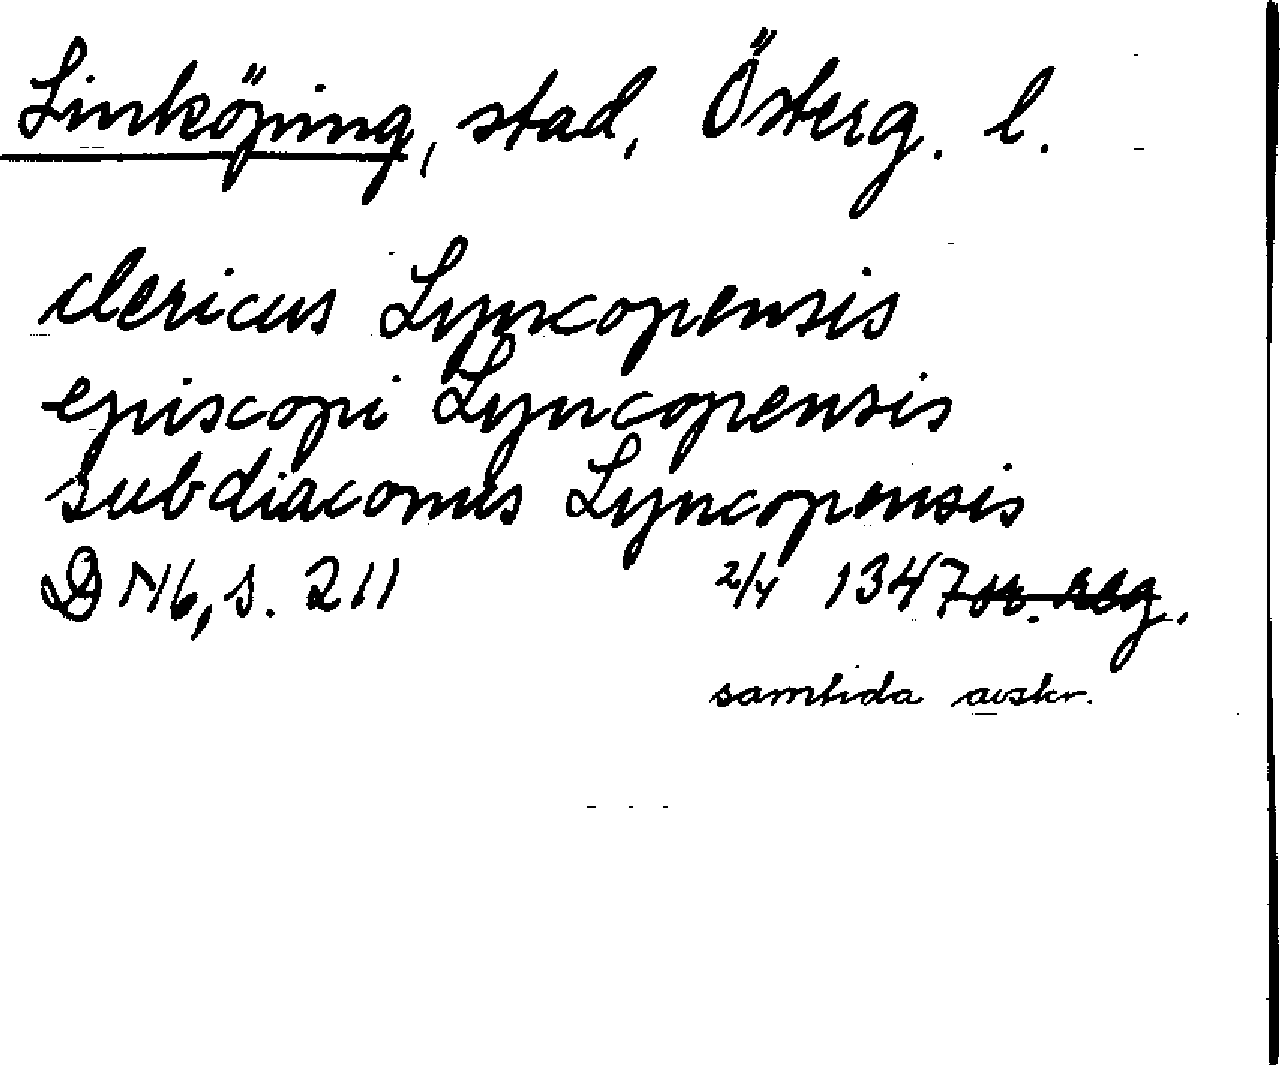 Linköping, stad, Österg. l.
clericus Lyncopensis
episcopi Lyncopensis
subdiaconus Lyncopensis
DN 6, s. 211 2/4 1347 or. reg.
samtida avskr.